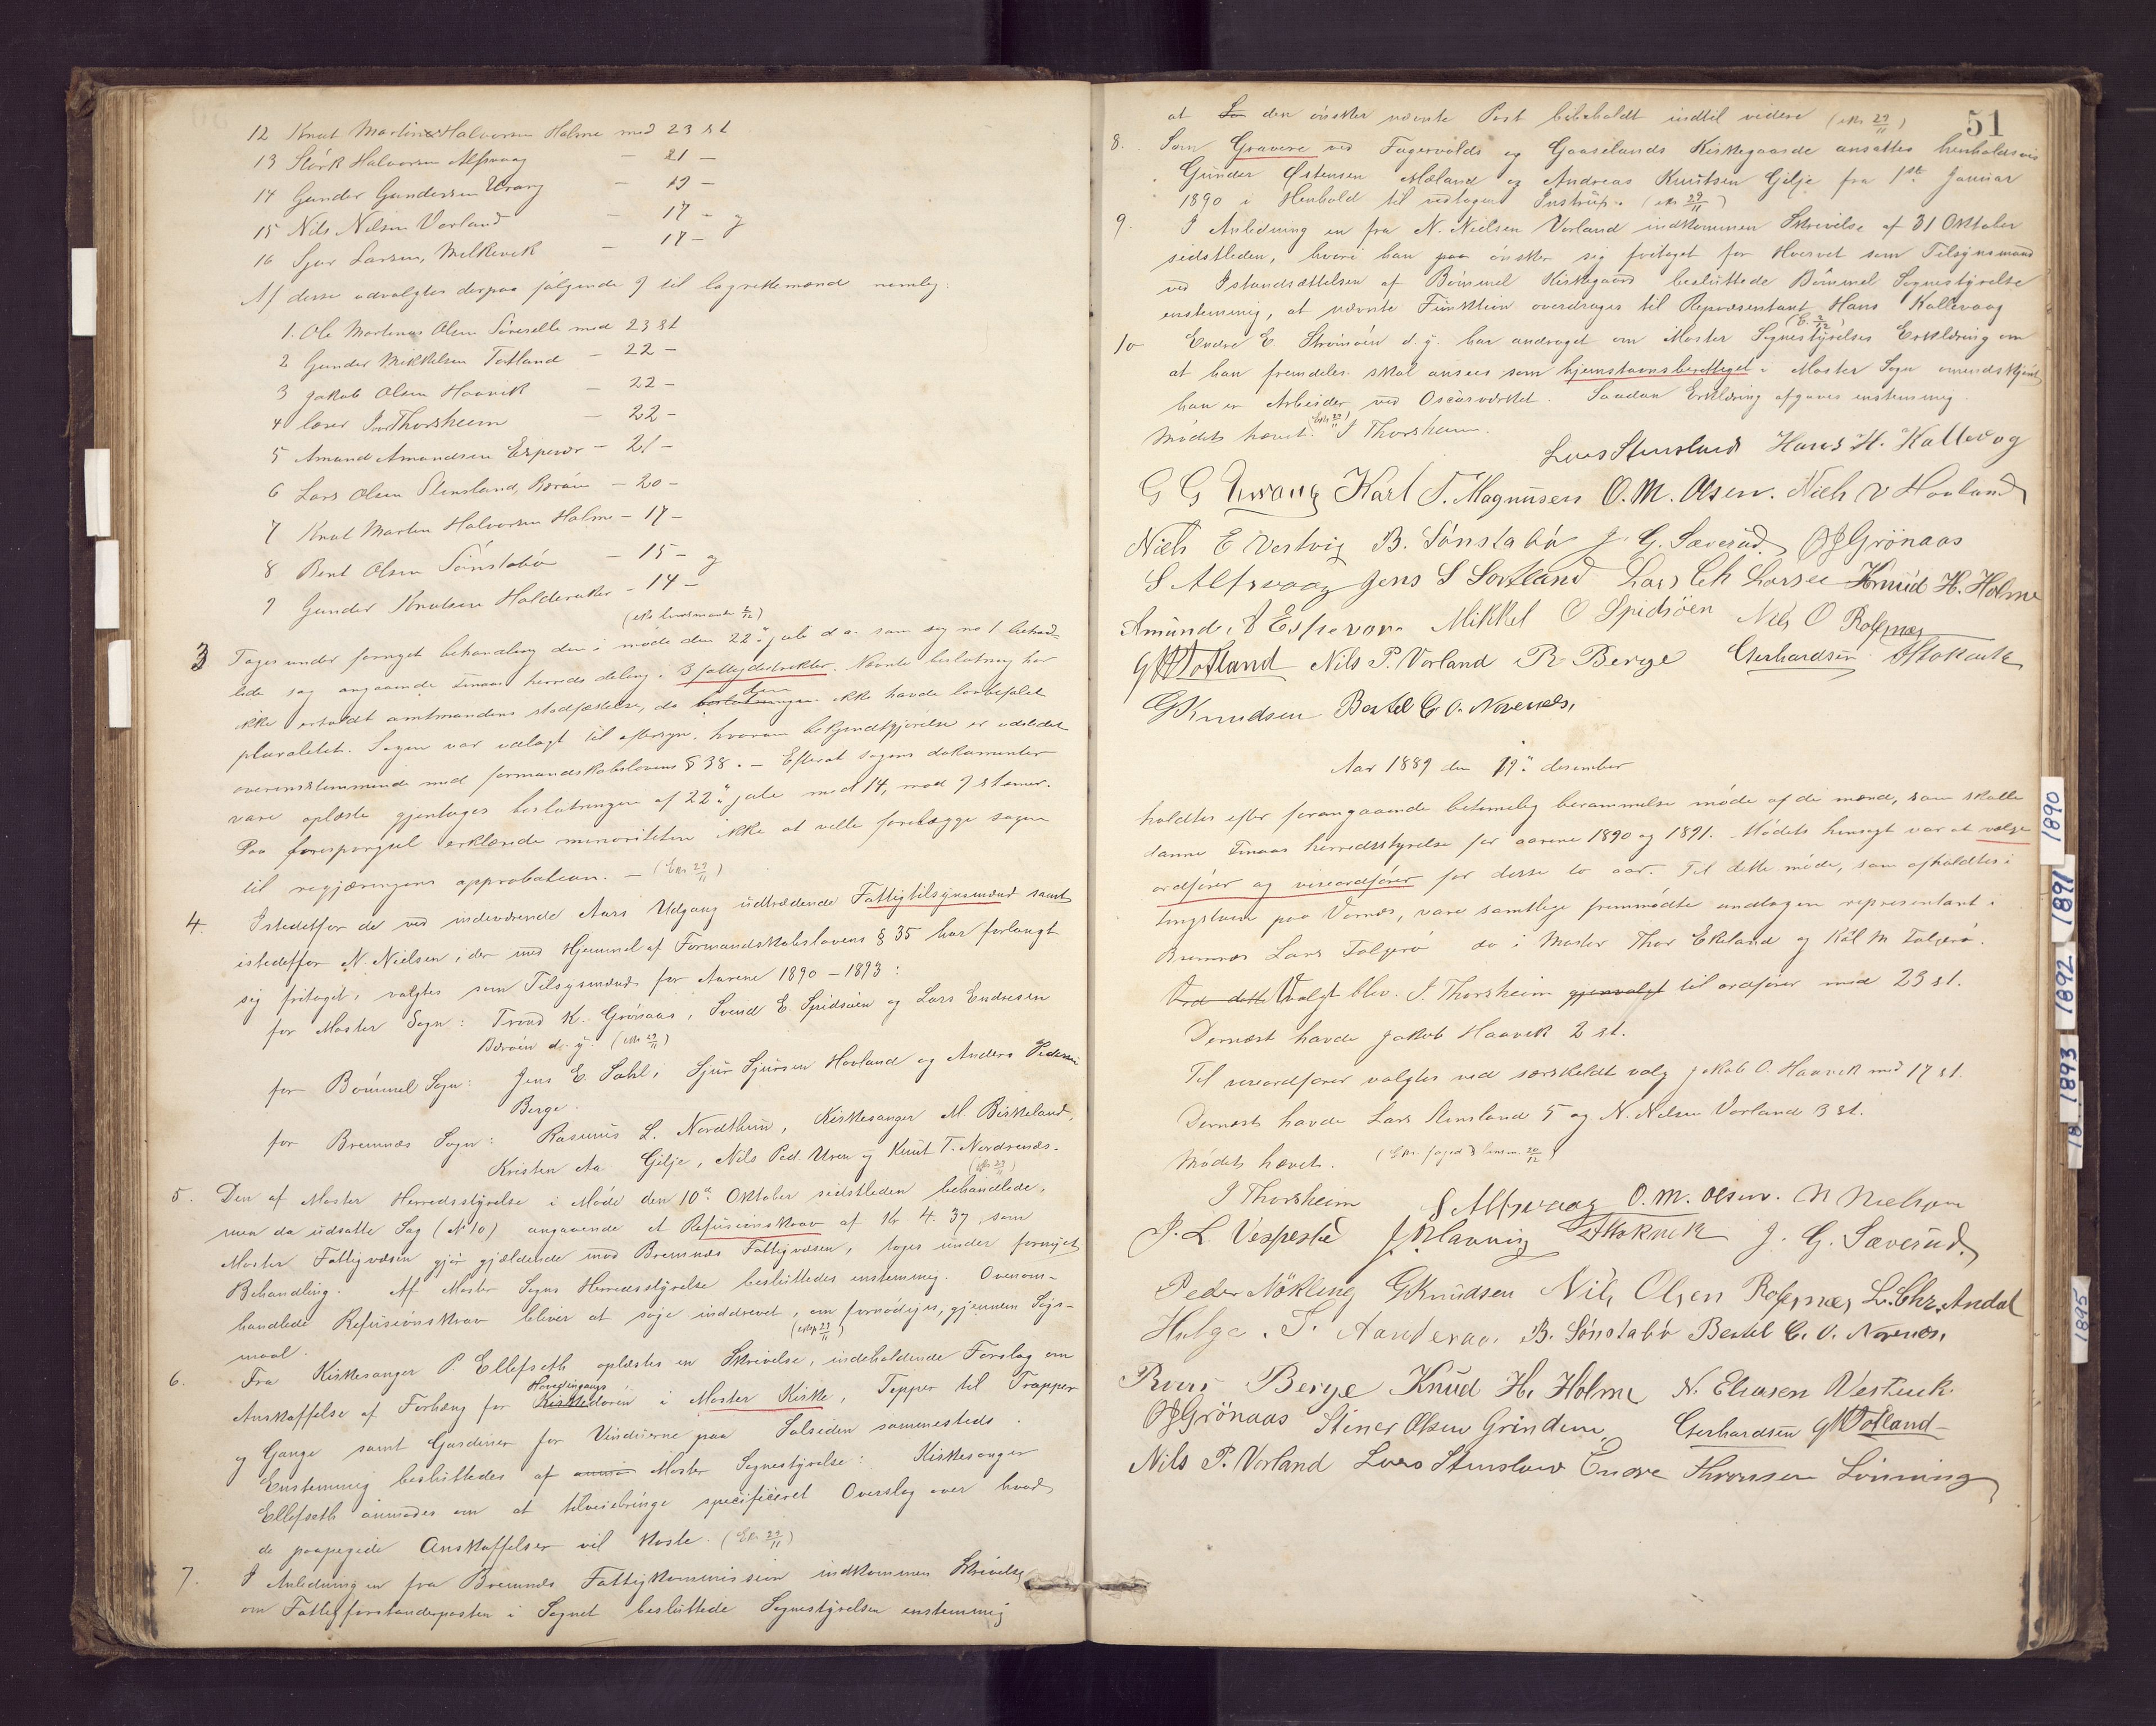 12 Knut Martin Halvorsen Holme med 23 st
13 Störk Halvorsen Alfsvaag — 21 —
14 Gunder Gundersen Urang — 19 —
15 Nils Nilsen Vorland — 17 — og
16 Sjur Larsen, Melkevik — 17 —
Af disse udvalgtes derpaa følgende 9 til lagrettemænd nemlig:
1. Ole Martinus Olsen Siveselle med 23 st
2 Gunder Mikkelsen Totland — 22 —
3 Jakob Olsen Haavik — 22 —
4 lærer I Thorsheim — 22 —
5 Amund Amundsen Espevær — 21 —
6 Lars Olsen Stensland, Børøen — 20 —
7 Knut Martin Halvorsen Holme — 17 —
8 Bent Olsen Sönstabö — 15 — og
9 Gunder Knutsen Holderaker — 14 —
3 Toges under fornyet behandling den i møde den 22de juli d. a. som sag no 1 behand-
lede sag angaaende Finaas herreds deling i 3 fattigdistrikter. Nævnte beslutning har
ikke erholdt amtmandens stadfæstelse, da beslutningen den ikke havde lovbefalet
pluralitet. Sagen var udlagt til eftersyn, hvorom bekjendtgjørelse er udstedet
overensstemmende med formandskabslovens § 38. — Efterat sagens dokumenter
vare oplæste gjentoges beslutningen af 22de juli med 14, mod 9 stemmer.
Paa forespørgsel erklærede minoriteten ikke at ville forelægge sagen
til regjæringens approbation. — (Ex 29/11)
4. Istedetfor de ved indeværende Aars Udgang udtrædende Fattigtilsynsmænd samt
istedetfor N. Nielsen, der med Hjemmel af Formandskabslovens § 35 har forlangt
sig fritaget, valgtes som Tilsynsmænd for Aarene 1890 – 1893:
for Moster Sogn: Trond K. Grönaas, Svend E. Spidsöen og Lars Endresen
Børøen d. y. (Ex 29/11)
for Bömmel Sogn: Jens E. Sahl, Sjur Sjursen Hovland og Anders Pedersen
Berge.
for Bremnæs Sogn: Rasmus L. Nordthun, Kirkesanger M. Birkeland,
Kristen Aa Gilje, Nils Ped. Uren og Knut T. Nordrenæs.
5. Den af Moster Herredsstyrelse i Møde den 10de Oktober sidstleden behandlede,
men da udsatte Sag (N 10) angaaende et Refusionskrav af Kr 4. 37, som
Moster Fattigvæsen gjør gjældende mod Bremnæs Fattigvæsen, toges under fornyet
Behandling. Af Moster Sogns Herredsstyrelse besluttedes enstemmig. Ovenom-
handlede Refusionskrav bliver at søge inddrevet, om fornødiges, gjennem Søgs-
maal. (Exp 29/11)
6. Fra Kirkesanger P. Ellefseth oplæstes en Skrivelse, indeholdende Forslag om
Anskaffelse af Forhæng for Hovedingangs Kirkedøren i Moster Kirke, Tepper til Trapper
og Gange samt Gardiner for Vinduerne paa Solsiden sammesteds.
Enstemmig besluttedes af Moster Sognestyrelse: Kirkesanger
Ellefseth anmodes om at tilveiebringe specificeret Overslag over hvad
de paapegede Anskaffelser vil koste. (Ex. 29/11)
7. I Anledning en fra Bremnæs Fattigkommission indkommen Skrivelse
om Fattigforstanderposten i Sognet besluttede Sognestyrelsen enstemmig
51
at den ønsker nævnte Post bibeholdt indtil videre (Ex 29/11)
8. Som Gravere ved Fagervolds og Gaaselands Kirkegaarde ansattes henholdsvis
Gunder Østensen Mæland og Andreas Knutsen Gilje fra 1ste Januar
1890 i Henhold til vedtagen Instrux. (Ex 29/11)
9. I Anledning en fra N. Nielsen Vorland indkommen Skrivelse af 31 Oktober
sidstleden, hvori han paa ønsker sig fritaget for Hvervet som Tilsynsmand
ved Istandsættelsen af Bömmel Kirkegaard besluttede Bömmel Sognestyrelse
enstemmig, at nævnte Funktion overdrages til Repræsentant Hans Kallevaag
10 Endre E. Strömöen d. y. har andraget om Moster Sognestyrelses Erklæring om
at han fremdeles skal ansees som hjemstavnsberettiget i Moster Sogn omendskjönt
han er Arbeider ved Oscarsværket. Saadan Erklæring afgaves enstemmig.
Mödet hævet. I Thorsheim
Lars Stensland Hans H. Kallevog
G G Urang Karl T. Magnussen O. M. Olsen. Niels V Hovland
Niels E Vestvig B. Sönstabö J. G. Sæverud. O J Grönaas
S Alfsvaag Jens S Sortland Lars Ch Larsen Knud H. Holme
Amund. A Espevær. Mikkel O Spidsöen Nils O Rolfsnæs
G M Totland Nils P. Vorland R Berge Gerhardsen
G Knudsen Bertel C. O. Norenes.
Aar 1889 den 19de desember
holdtes efter forangaaende betimelig berammelse møde af de mænd, som skulle
danne Finaas herredsstyrelse for aarene 1890 og 1891. Mødets hensigt var at vælge
ordfører og viseordfører for disse to aar. Til dette møde, som afholdtes i
tingstuen paa Vornæs, vare samtlige fremmødte undtagen representant i
Bremnæs Lars Folgerö do i Moster Thor Ekeland og Köl M Folgerö.
Ved dette Valgt blev I. Thorsheim gjenvalgt til ordfører med 23 st.
Dernæst havde Jakob Haavik 2 st.
Til viseordfører valgtes ved særskildt valg Jakob O. Haavik med 17 st.
Dernæst havde Lars Stensland 5 og N. Nilsen Vorland 3 st.
Mødet hævet.
I Thorsheim S Alfsvaag O. M. Olsen. N Nielsen
J. L. Vespestd J. G. Sæverud.
Peder Nökling G Knudsen Nils Olsen Rolfsnæs L. Chr. Andal
Helge. T. B. Sönstabö Bertel C. O. Norenes.
Berge Knud H. Holme N. Eliasen Vestvik
O J Grönaas Stener Olsen Grindem Gerhardsen G M Totland
Nils P. Vorland Lars Stensland Endre Lönning
1890
1891
1892
1893
1895